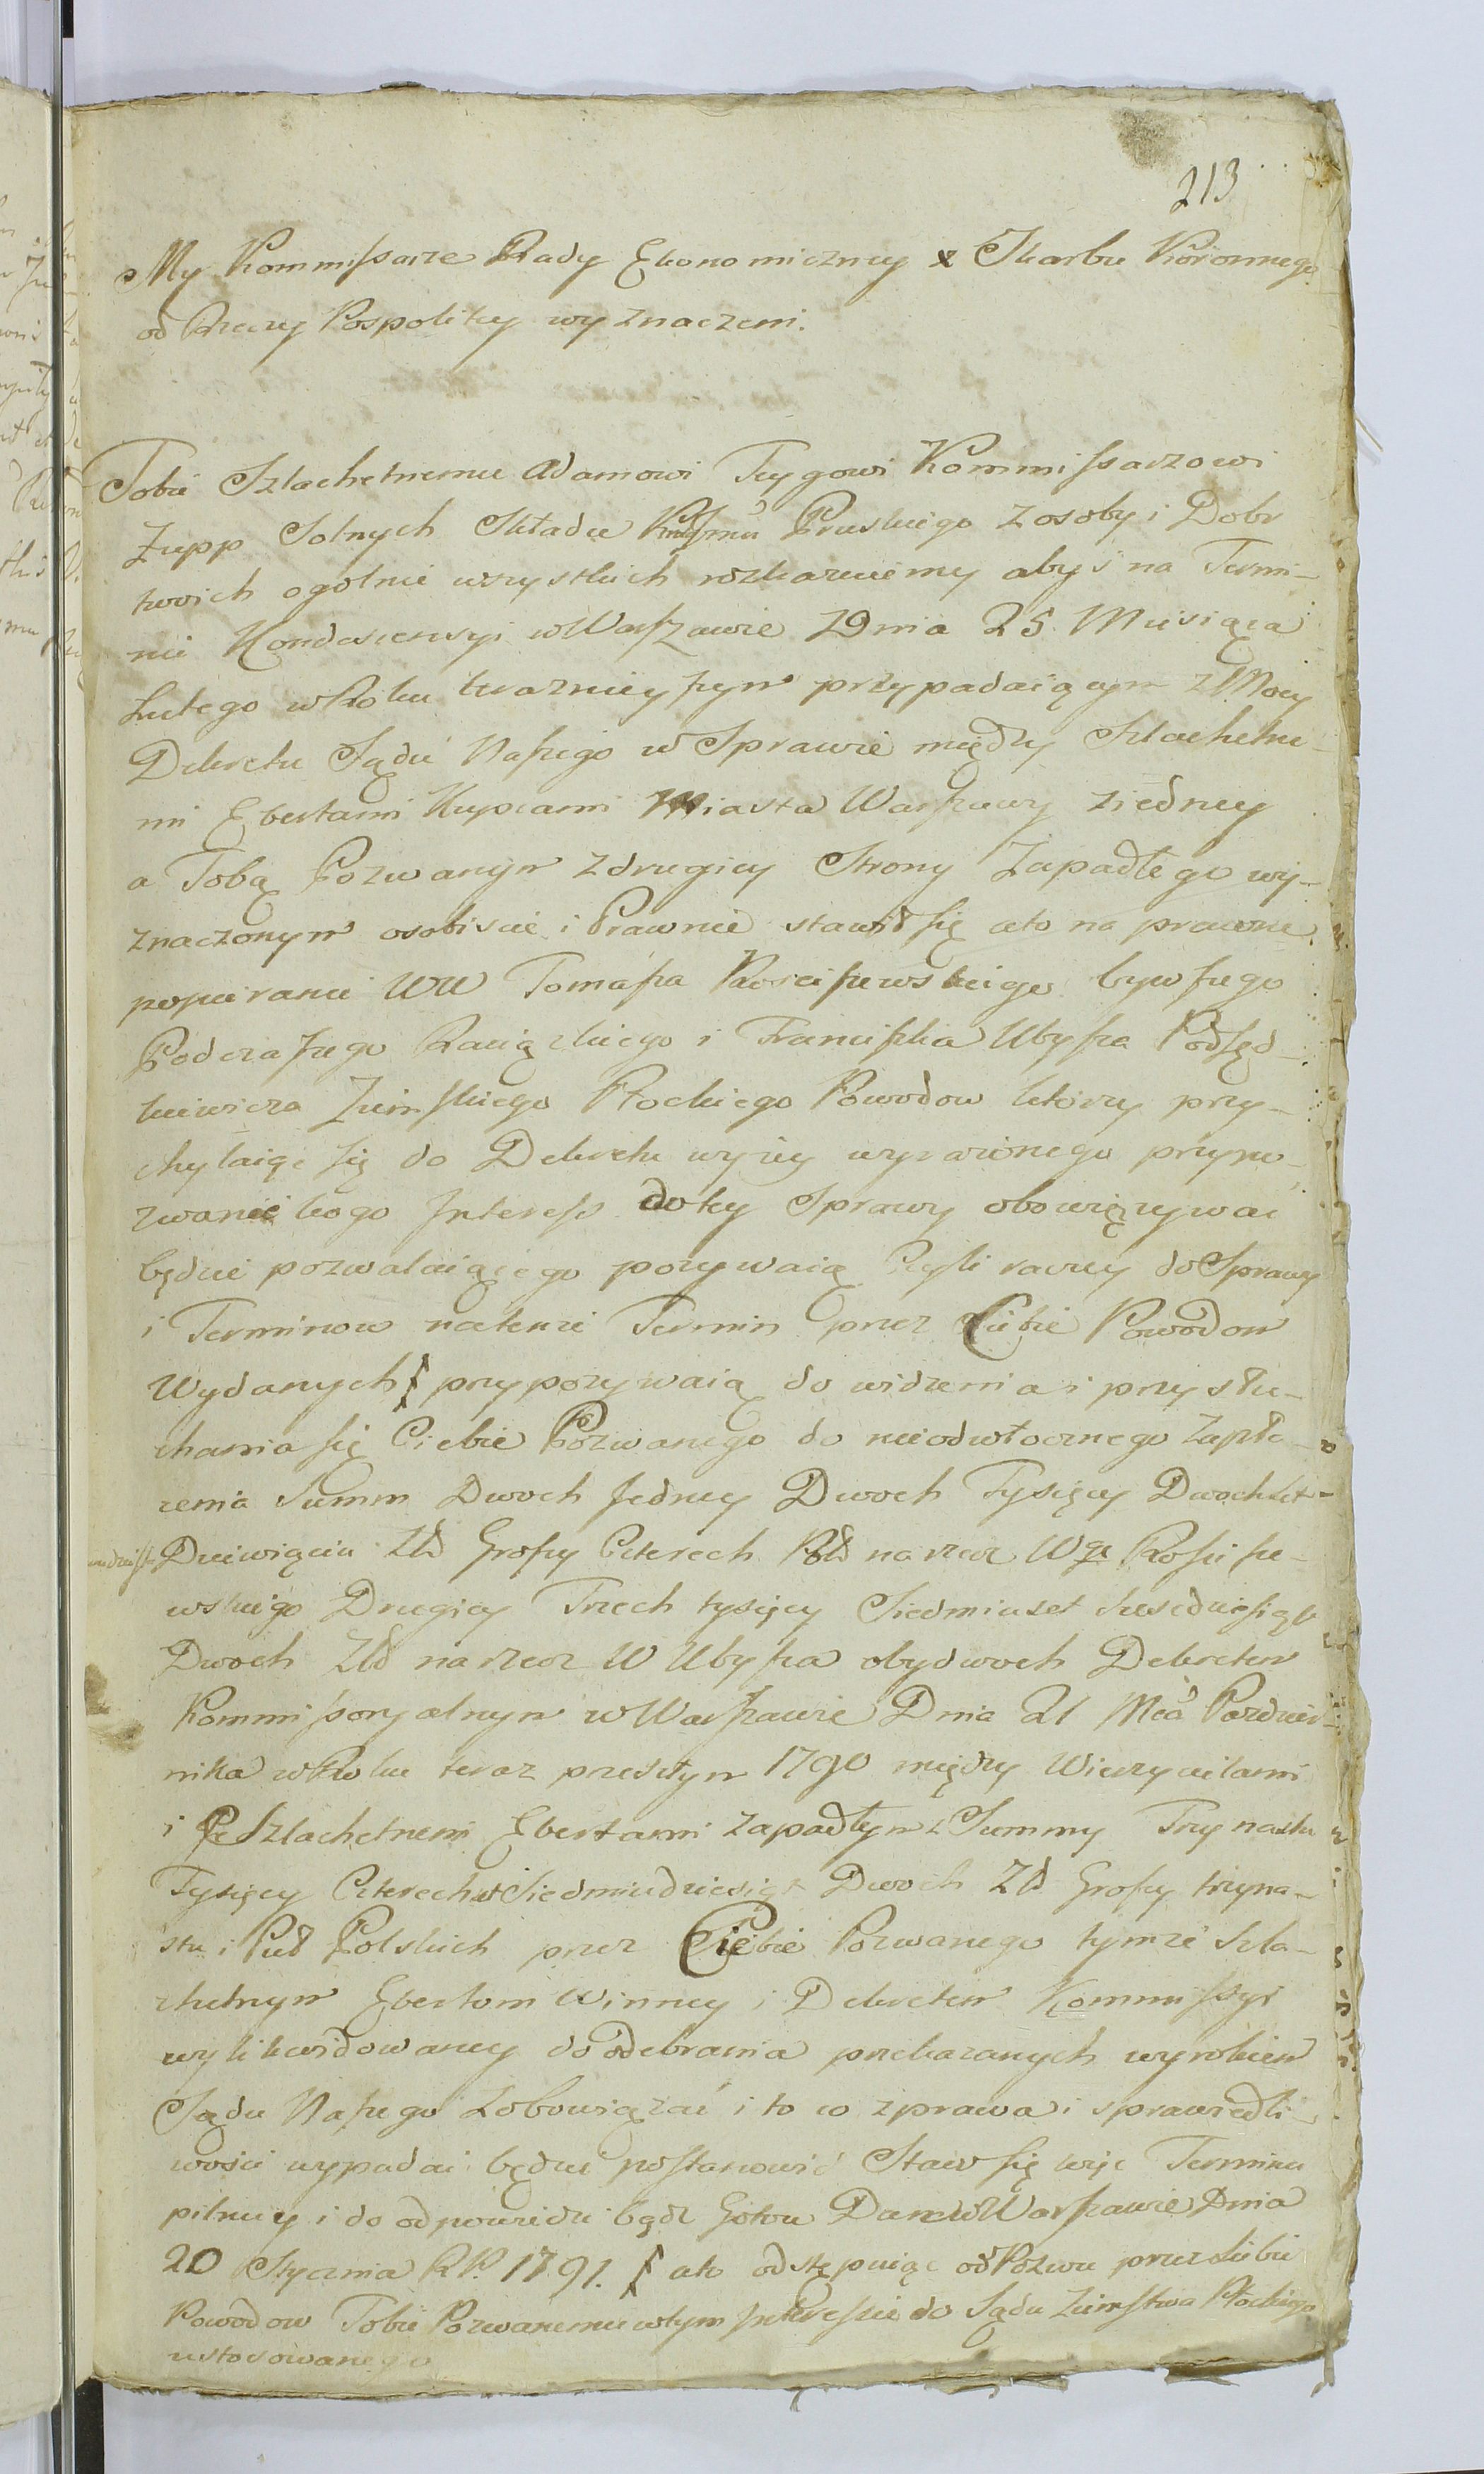 213
My Kommissarze Rady Ekonomiczney Skarbu Koronnego
od Rzeczy Pospolitey wyznaczeni.
Tobie Szlachetnemu Adamowi Trygowi Kommissarzowi
Żupp Solnych Składu Pruskiego z osoby i Dobr
twoich ogolnie wszystkich rozkazuiemy abyś na Termi-
nie Kondescensyi w Warszawie Dnia 25 Miesiąca
Lutego w Roku teraznieyszym przypadaiącym z Mocy
Dekretu Sądu Naszego w Sprawie między Szlachetne-
mi Ebertami Kupcami Miasta Warszawy z iedney
a Tobą Pozwanym z drugiey Strony Zapadłego wy-
znaczonym osobiscie i Prawnie stawił się a to na prawne
popieranie WW Tomasza Kosciszewskiego bywszego
Podczaszego Raciąskiego i Franciszka Ubysza Podsęd-
kiewicza Ziemskiego Płockiego Powodow ktorzy przy-
chylaiąc się do Dekretu wyżey wyrażonego przypo-
zwanie kogo Interess do tey Sprawy obowięzywać
będzie pozwalaiącego pozywaią Czyli raczey do Sprawy
i Terminow na tenże Termin przez Ciebie Powodom
Wydanych przypozywaią do widzenia i przysłu-
chania się Ciebie Pozwanego do nieodwłocznego Zapła-
cenia Summ Dwoch Jedney Dwoch Tysięcy Dwochset
Dziewięciu Zł Groszy Czterech Pol na rzecz Wgo Kosisze-
wskiego Drugiey Trzech tysięcy Siedmiuset Szescdziesiąt
Dwoch Zł na rzecz W Ubysza obydwoch Dekretem
Kommissoryalnym w Warszawie Dnia 21 Mca Pazdzier-
nika w Roku teraz przeszłym 1790 między Wierzycielami
i Szlachetnemi Ebertami zapadłym z Summy Trzynastu
Tysięcy Czterechset Siedmiudziesiąt Dwoch Zł Groszy trzyna-
stu i Puł Polskich przez Ciebie Pozwanego tymże Szla-
chetnym Ebertom Winney i Dekretem Kommissyi
wylikwidowaney do odebrania przekazanych wyrokiem
Sądu Naszego Zobowiązać i to co z prawa i sprawiedli-
wości wypadać będzie postanowić Staw się więc Terminu
pilnuy i do odpowiedzi bądz Gotow Dan w Warszawie Dnia
20 Stycznia RP. 1791. a to odstępuiąc od Pozwu przez Siebie
Powodow Tobie Pozwanemu w tym Interessie do Sądu Ziemstwa Płockiego
ustosowanego